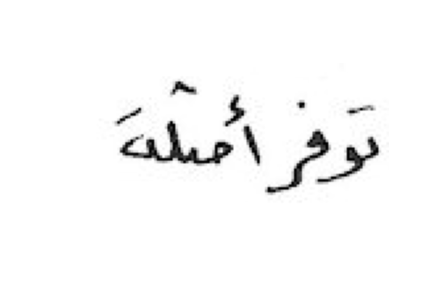 توفر أمثلة